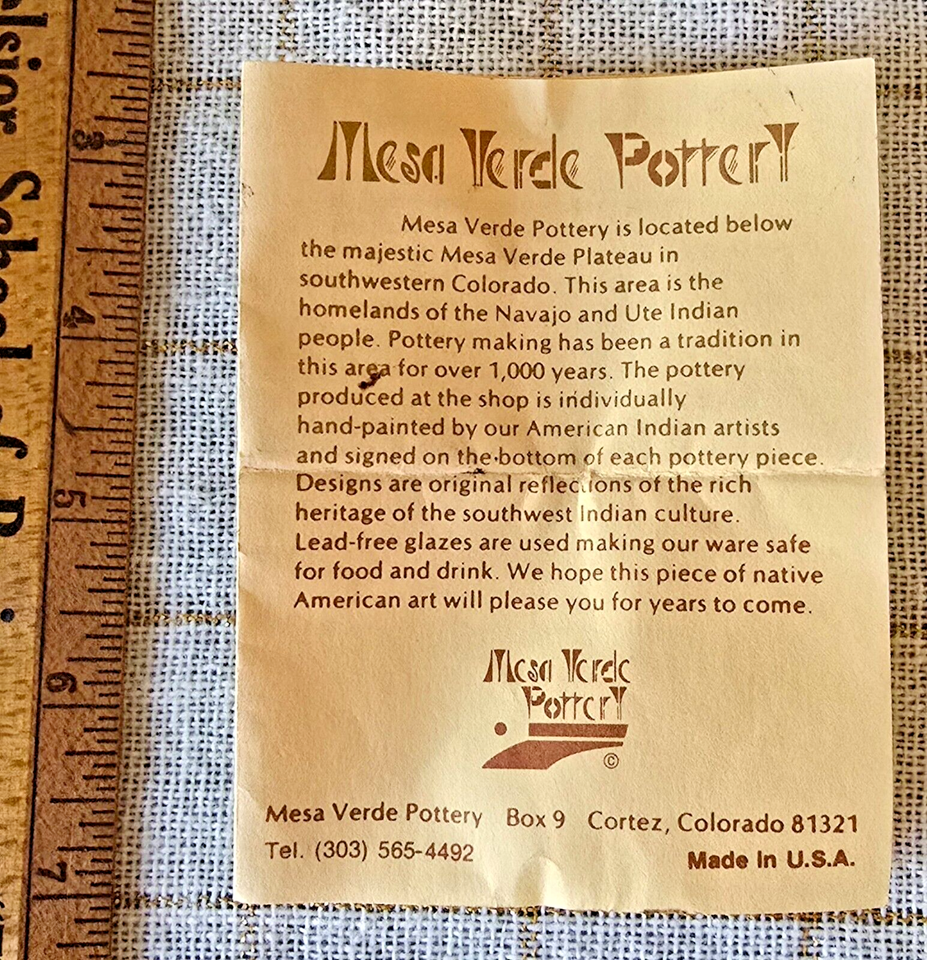 Mesa Verde Pottery
Mesa Verde Pottery is located below
the majestic Mesa Verde Plateau in
southwestern Colorado. This area is the
homelands of the Navajo and Ute Indian
people. Pottery making has been a tradition in
this area for over 1,000 years. The pottery
produced at the shop is individually
hand-painted by our American Indian artists
and signed on the bottom of each pottery piece.
Designs are original reflections of the rich
heritage of the southwest Indian culture.
Lead-free glazes are used making our ware safe
for food and drink. We hope this piece of native
American art will please you for years to come.
Mesa Verde
Pottery
©
Mesa Verde Pottery Box 9 Cortez, Colorado 81321
Tel. (303) 565-4492 Made In U.S.A.
3
4
5
6
7
School of